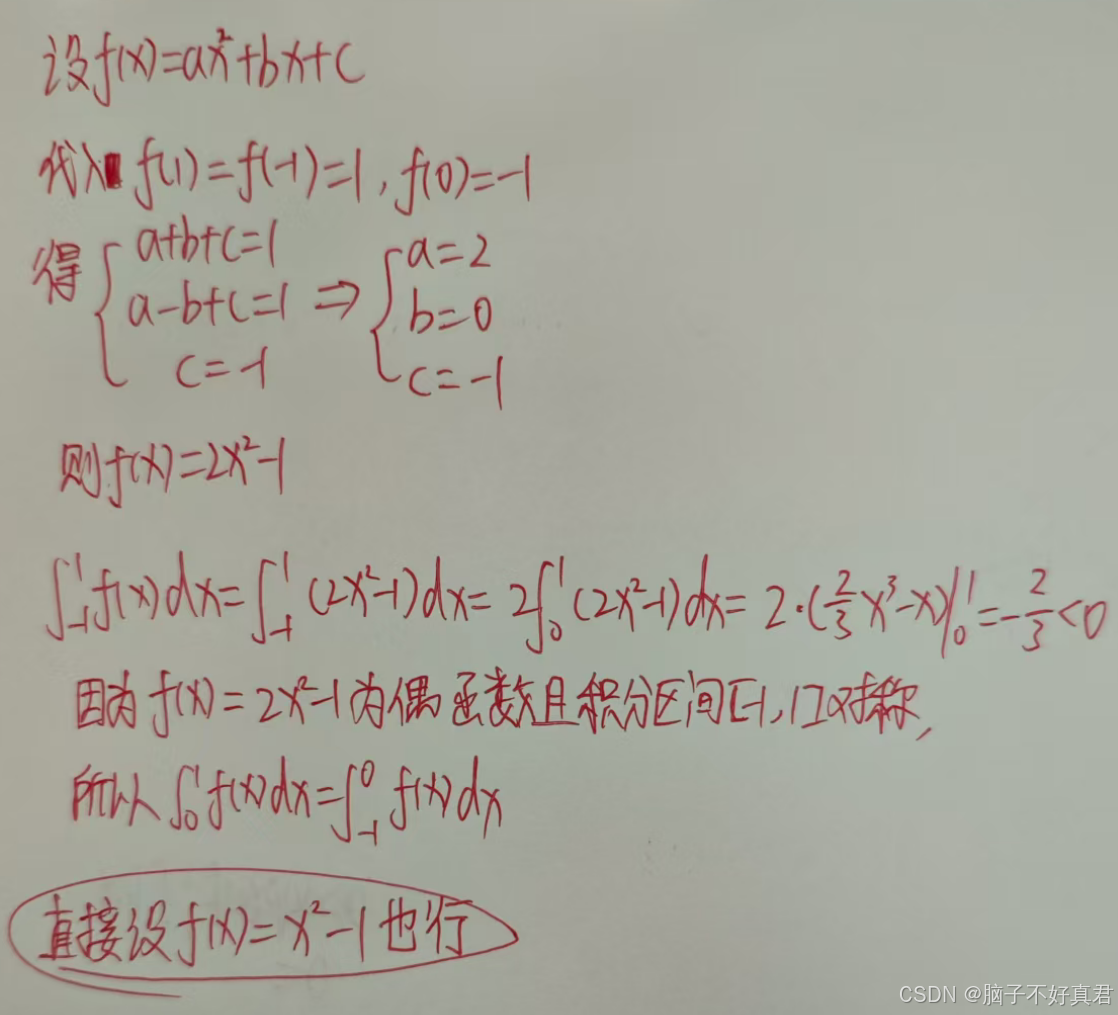 设f(x)=ax²+bx+c
代入 f(1)=f(-1)=1,f(0)=-1
得 { a+b+c=1 a-b+c=1 c=-1 ⇒ { a=2 b=0 c=-1
则f(x)=2x²-1
∫₋₁¹f(x)dx=∫₋₁¹(2x²-1)dx=2∫₀¹(2x²-1)dx=2·(2/3x³-x)|₀¹=-2/3<0
因为f(x)=2x²-1为偶函数且积分区间[-1,1]对称,
所以∫₀¹f(x)dx=∫₋₁⁰f(x)dx
直接设f(x)=x²-1也行
CSDN @脑子不好真君